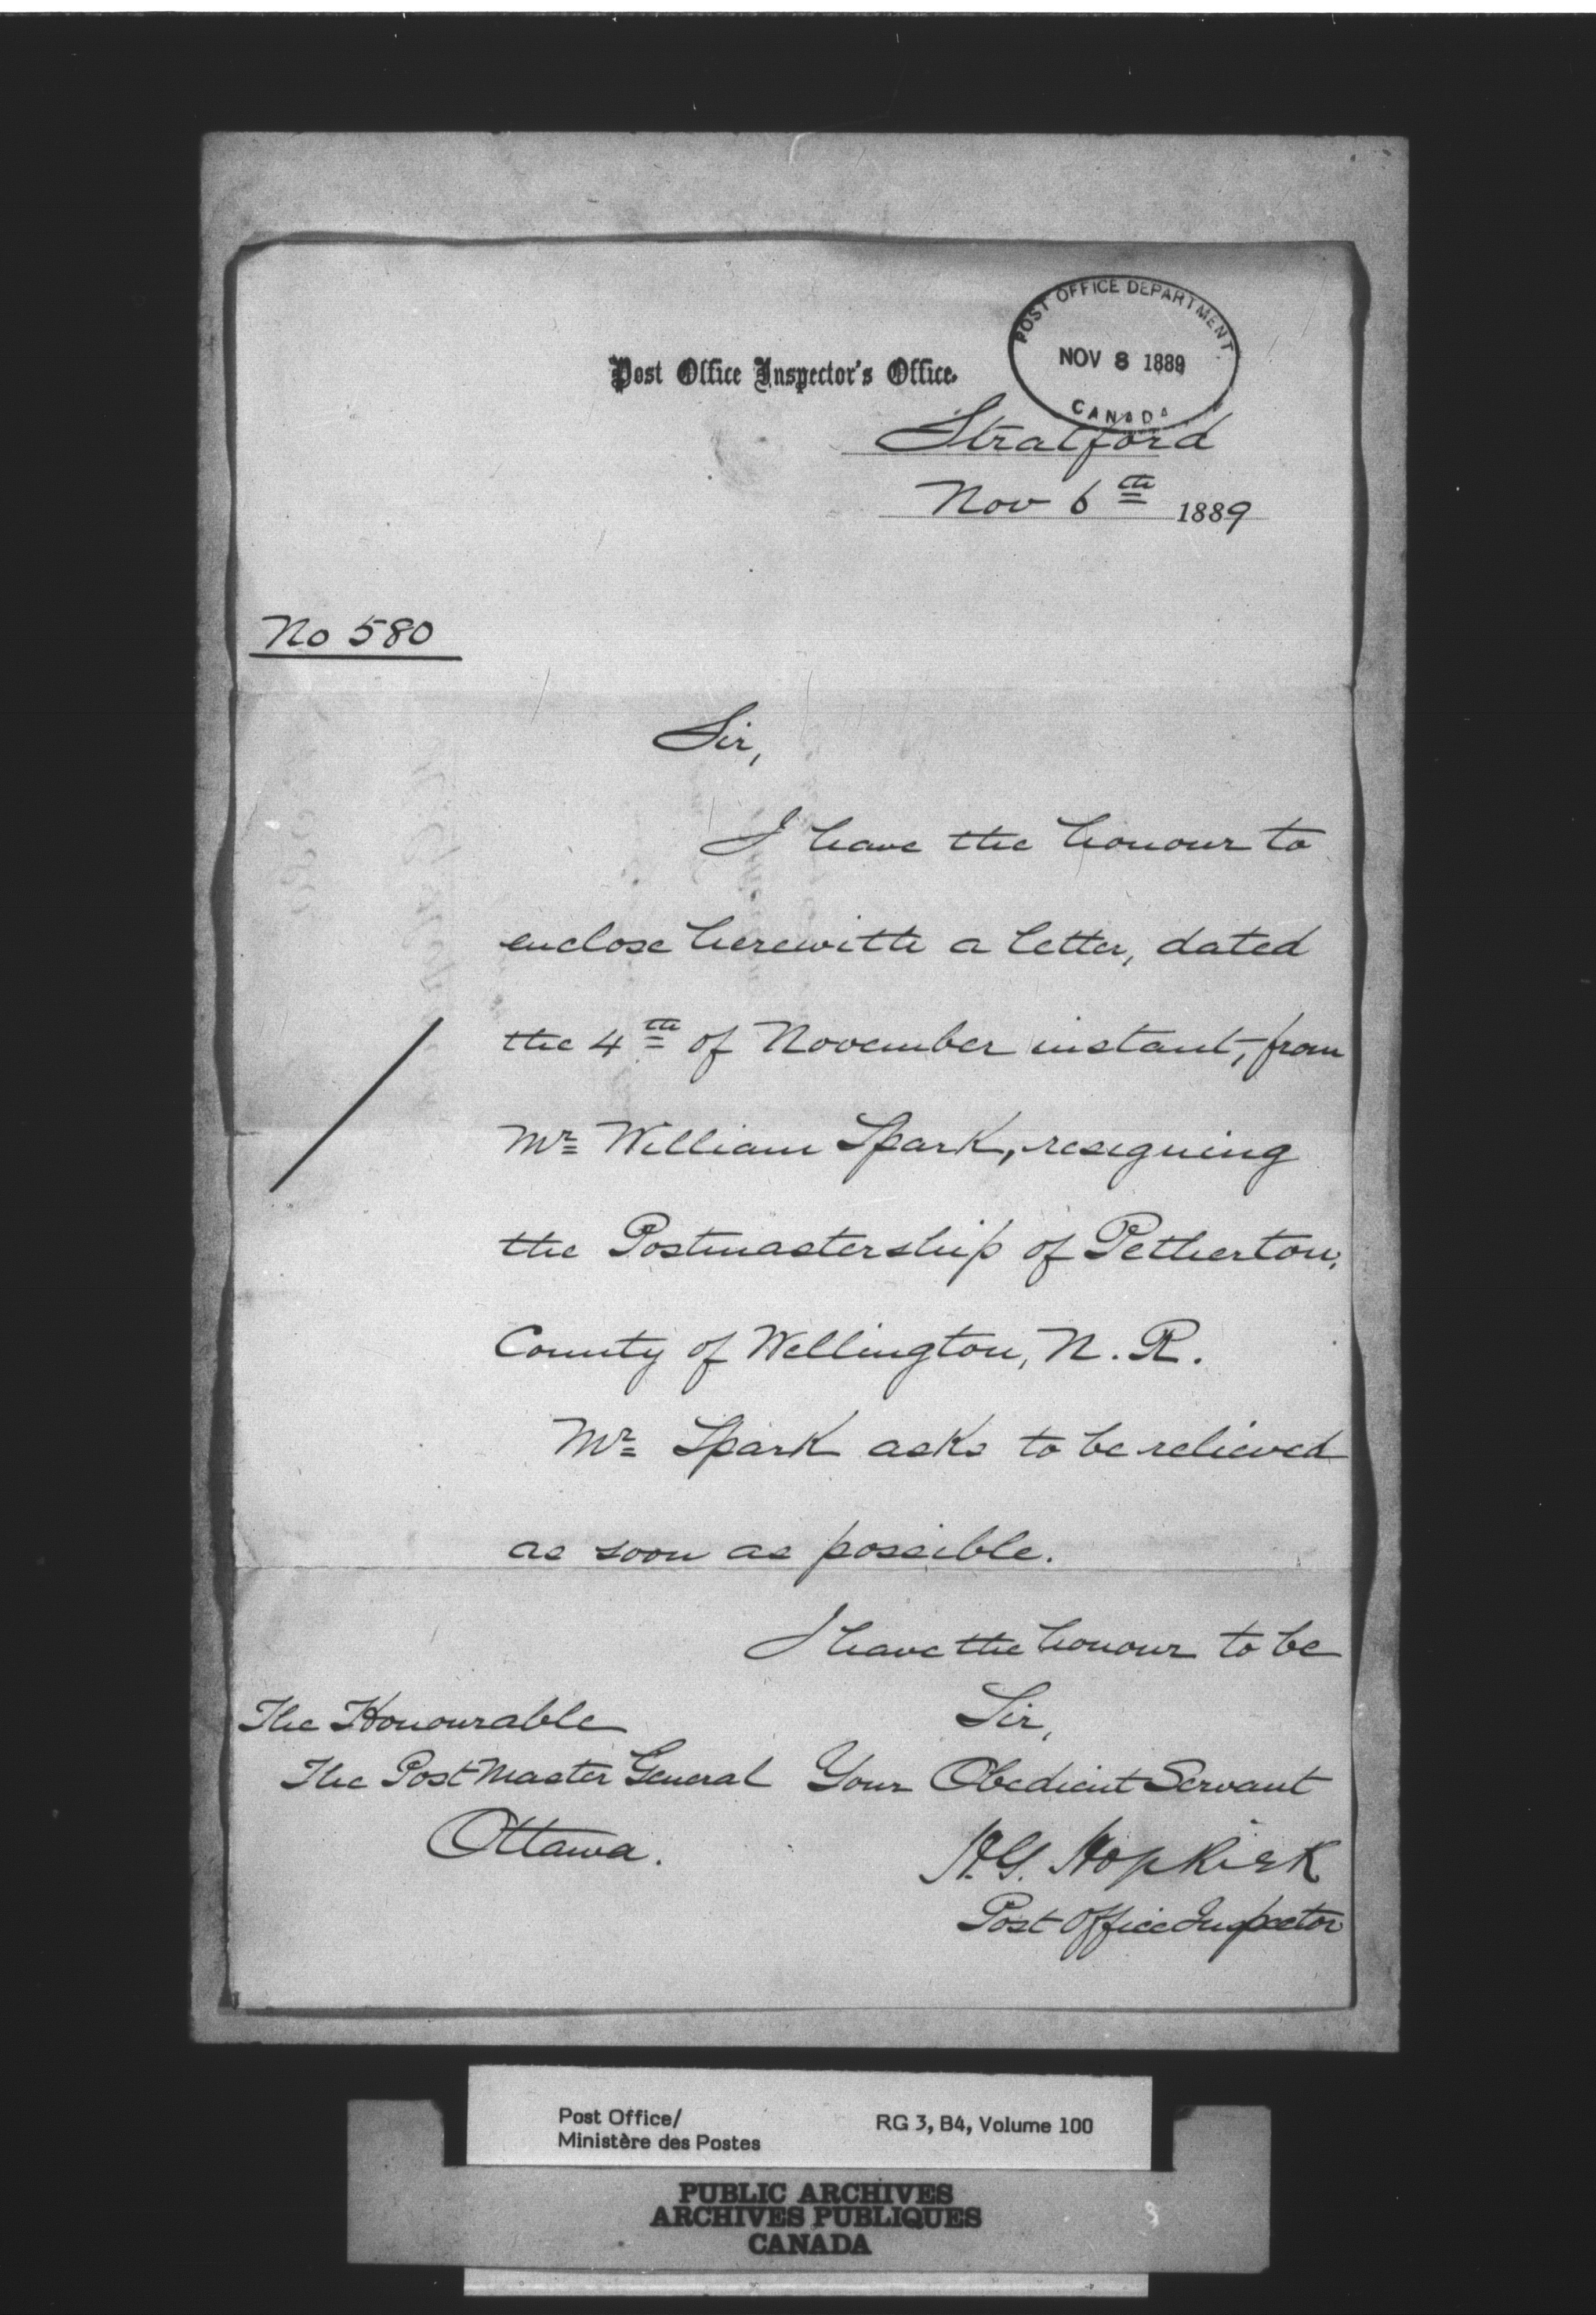 POST OFFICE DEPARTMENT
NOV 8 1889
CANADA
Post Office Inspector's Office.
Stratford
Nov 6th 1889
No 580
Sir,
I have the honour to
enclose herewith a letter, dated
the 4th of November instant, from
Mr William Spark, resigning
the Postmastership of Petherton,
County of Wellington, N. R.
Mr Spark asks to be relieved
as soon as possible.
I have the honour to be
Sir,
Your Obedient Servant
H.G. Hopkirk
Post Office Inspector
The Honourable
The Post Master General
Ottawa.
Post Office/
Ministère des Postes
RG 3, B4, Volume 100
PUBLIC ARCHIVES
ARCHIVES PUBLIQUES
CANADA